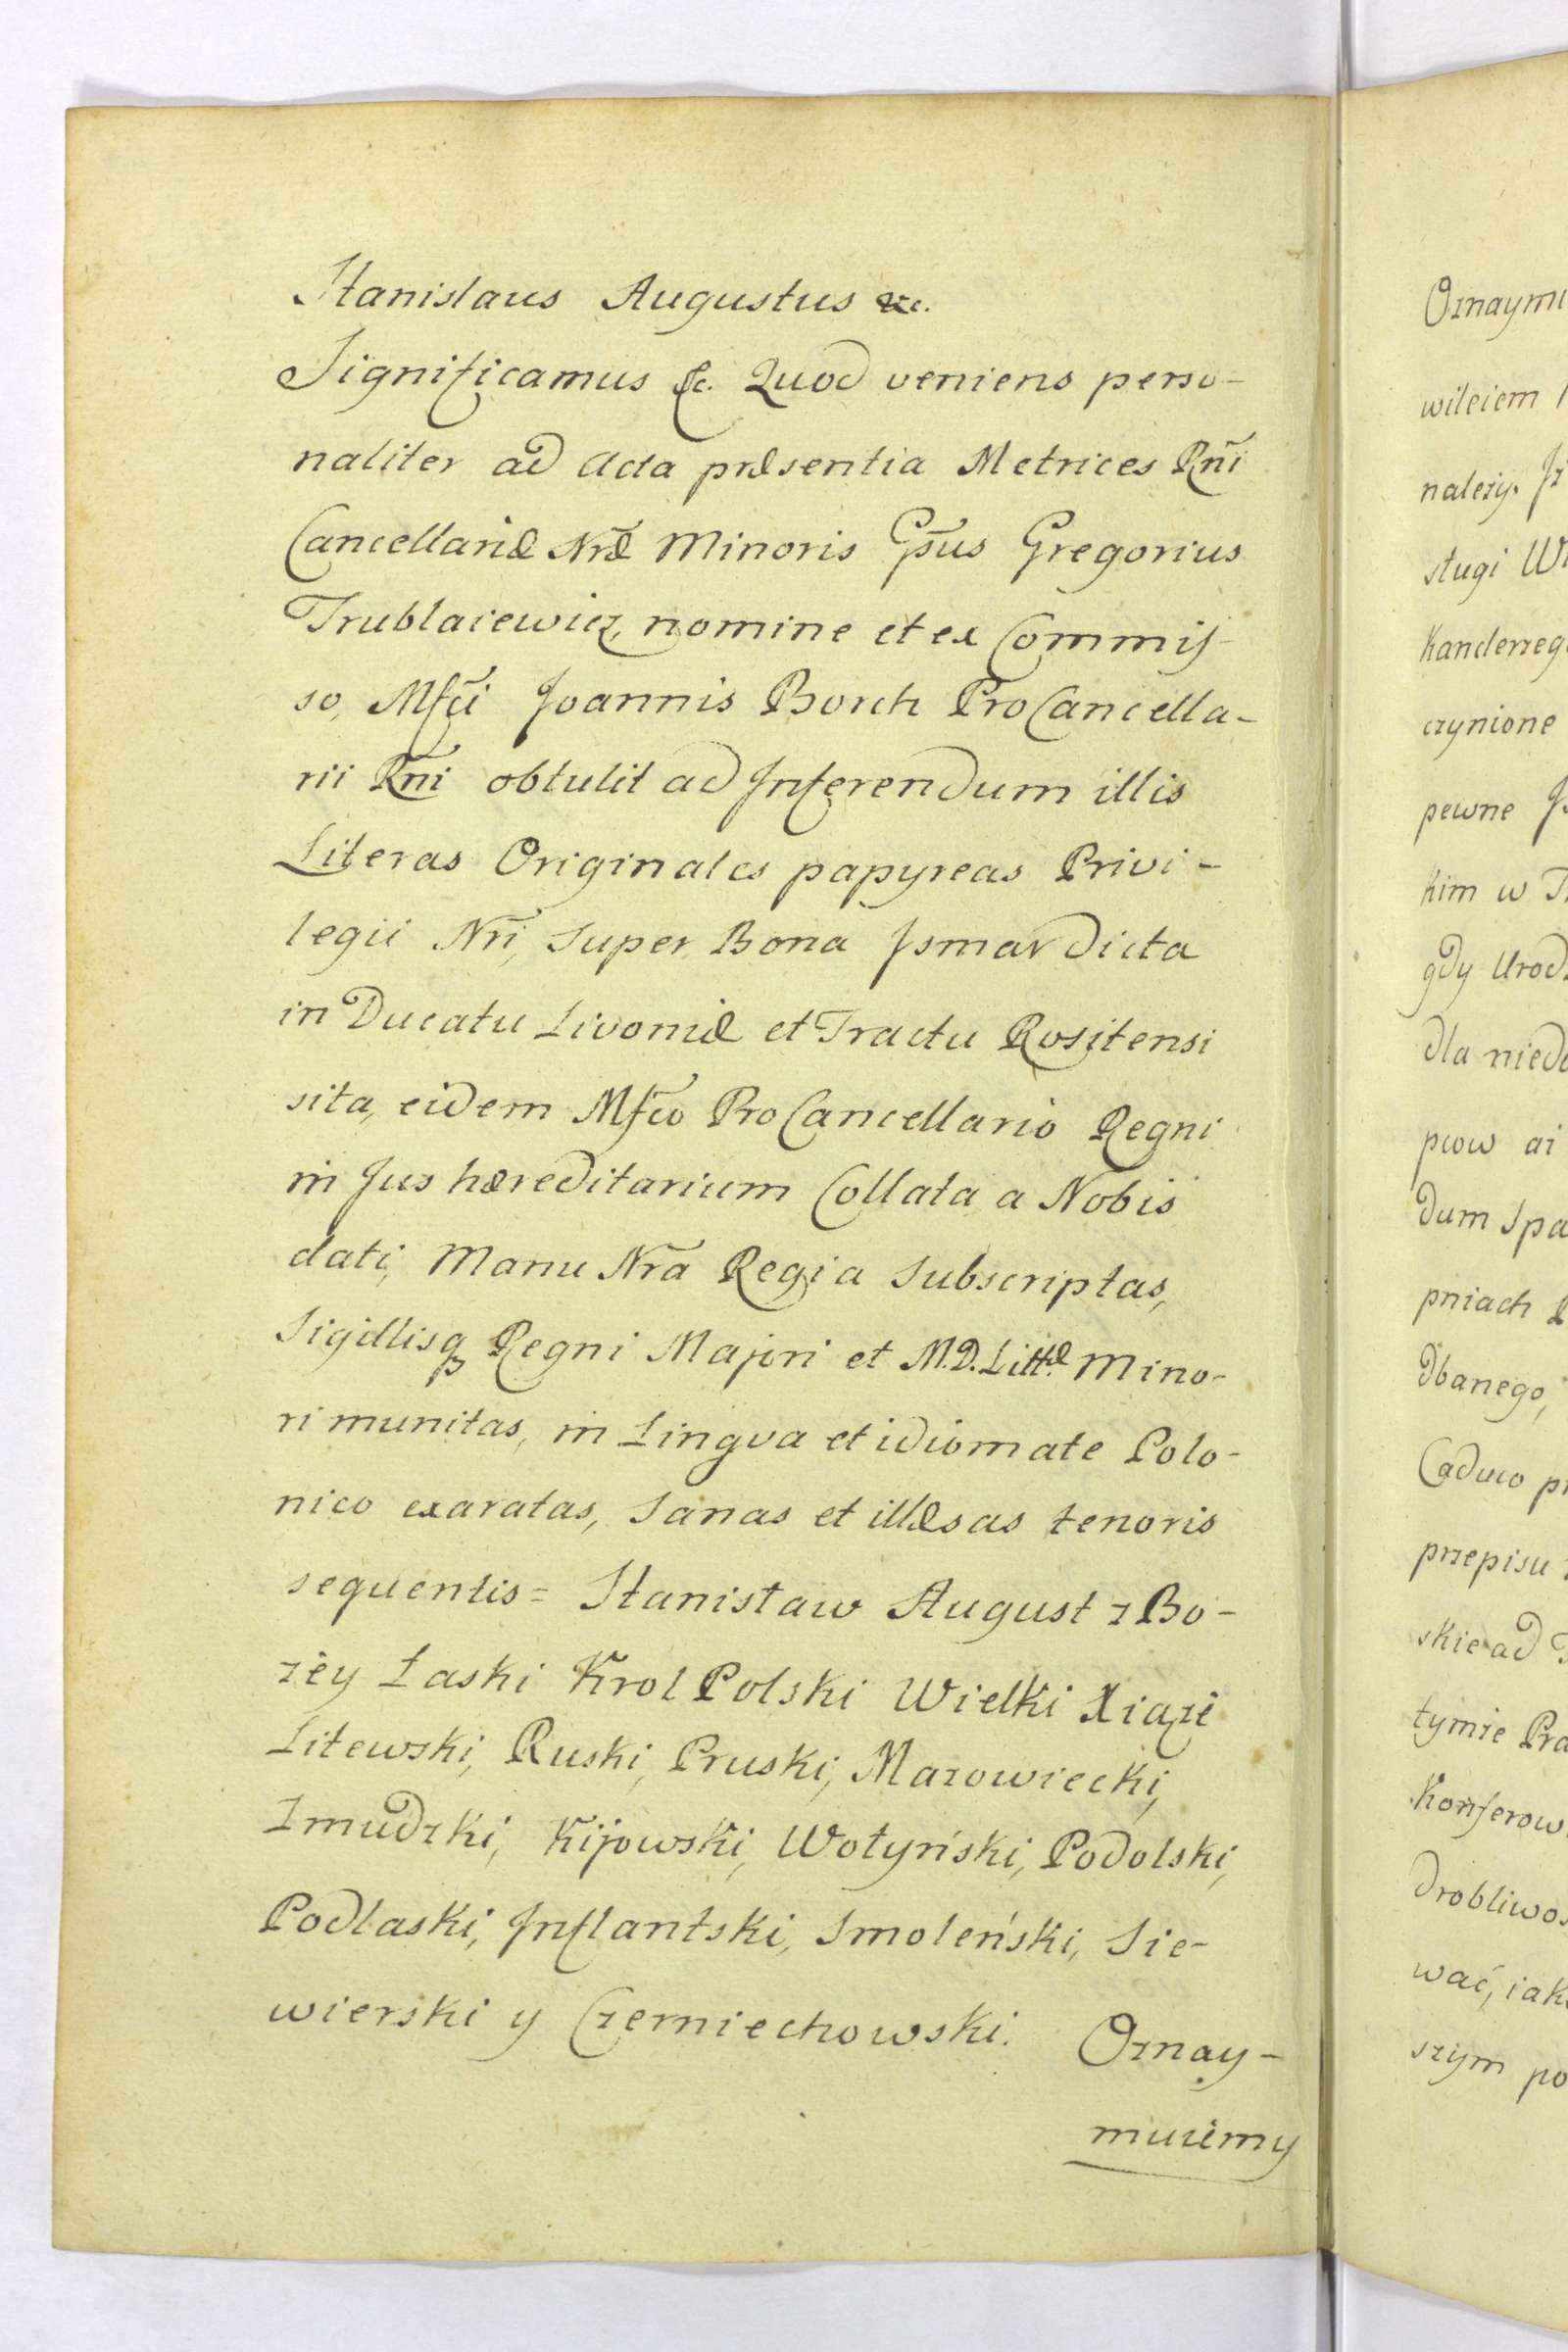 Stanislaus Augustus &c.
Significamus &c. Quod veniens perso-
naliter ad Acta præsentia Metrices Rñi
Cancellariæ Nræ Minoris Gsus Gregorius
Trublaiewicz, nomine et ex Commis-
so, Mfci Joannis Borch ProCancella-
rii Rñi obtulit ad Inferendum illis
Literas Originales papyreas Privi-
legii Nri, Super Bona Ismar dicta
in Ducatu Livoniæ et Tractu Rositensi
sita, eidem Mfco ProCancellario Regni
in Jus hæreditarium Collata a Nobis
dati, Manu Nrã Regia Subscriptas,
Sigillisq Regni Majori et M.D.Littæ Mino-
ri munitas, in Lingva et idiomate Polo-
nico exaratas, Sanas et illæsas tenoris
sequentis = Stanisław August z Bo-
żey Łaski Krol Polski Wielki Xiąże
Litewski, Ruski, Pruski, Mazowiecki,
Zmudzki, Kijowski, Wołyński, Podolski,
Podlaski, Inflantski, Smoleński, Sie-
wierski y Czerniechowski. Oznay-
muiemy
Oznaymu
wileiem
należy. Iż
sługi
Kanclerzeg
czynione
pewne
kim w
gdy Urod
dla niedo
pcow ai
dum Spa
pniach
dbanego,
Caduco pr
przepisu
skie ad
tymże Pra
Konferow
drobliwos
wać, iak
szym po